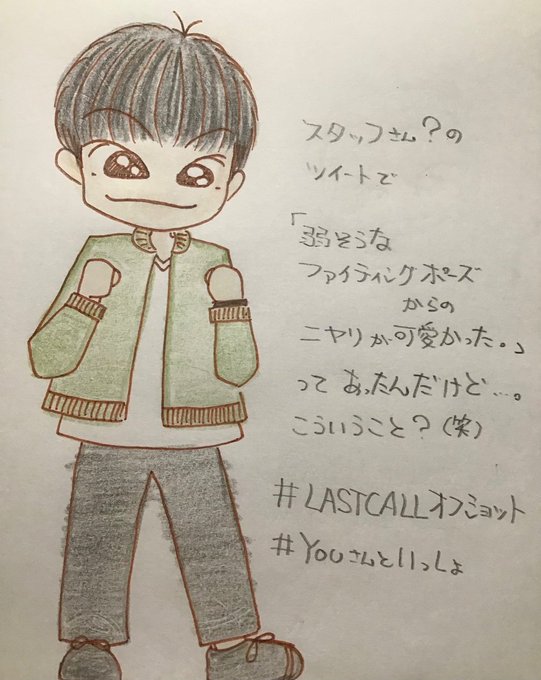 スタッフさん?の
ツイートで
「弱そうな
ファイティングポーズ
からの
ニヤリが可愛かった。」
ってあったんだけど…。
こういうこと?(笑)
#LASTCALLオフショット
#Youさんといっしょ